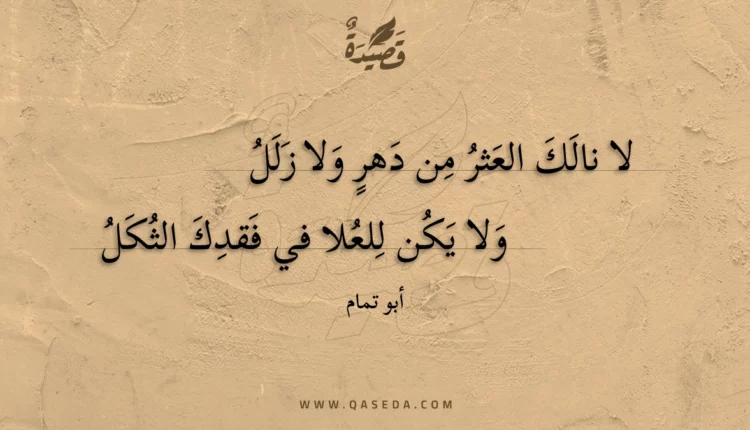 قَصِيدَةٌ
لا نالَكَ العَثرُ مِن دَهرٍ وَلا زَلَلُ
وَلا يَكُن لِلعُلا في فَقدِكَ الثُكَلُ
أبو تمام
WWW.QASEDA.COM